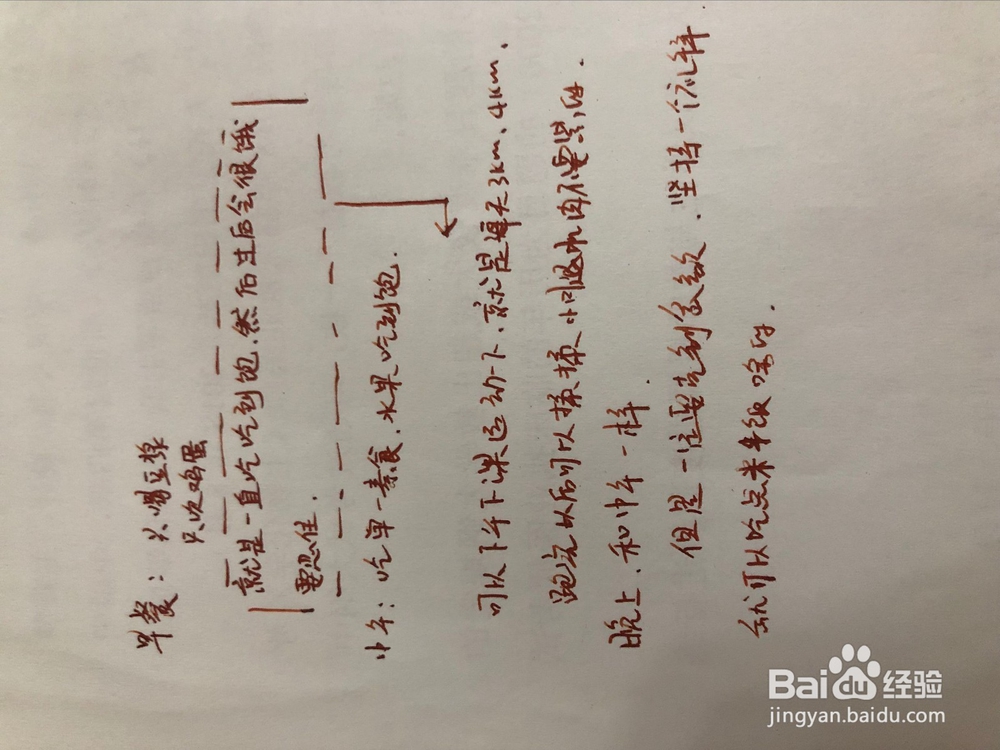 早餐：只喝豆浆
只吃鸡蛋
就是一直吃吃到饱、然后过后会很饿
要忍住.
中午：吃单一素食、水果吃到饱.
可以下午下课运动一下、就是每天3km、4km.
跑完以后可以揉揉小腿肌肉不要紧的.
晚上、和中午一样.
但是一定要克制食欲、坚持一个礼拜
就可以吃点米饭啥的.
Baidu经验
jingyan.baidu.com